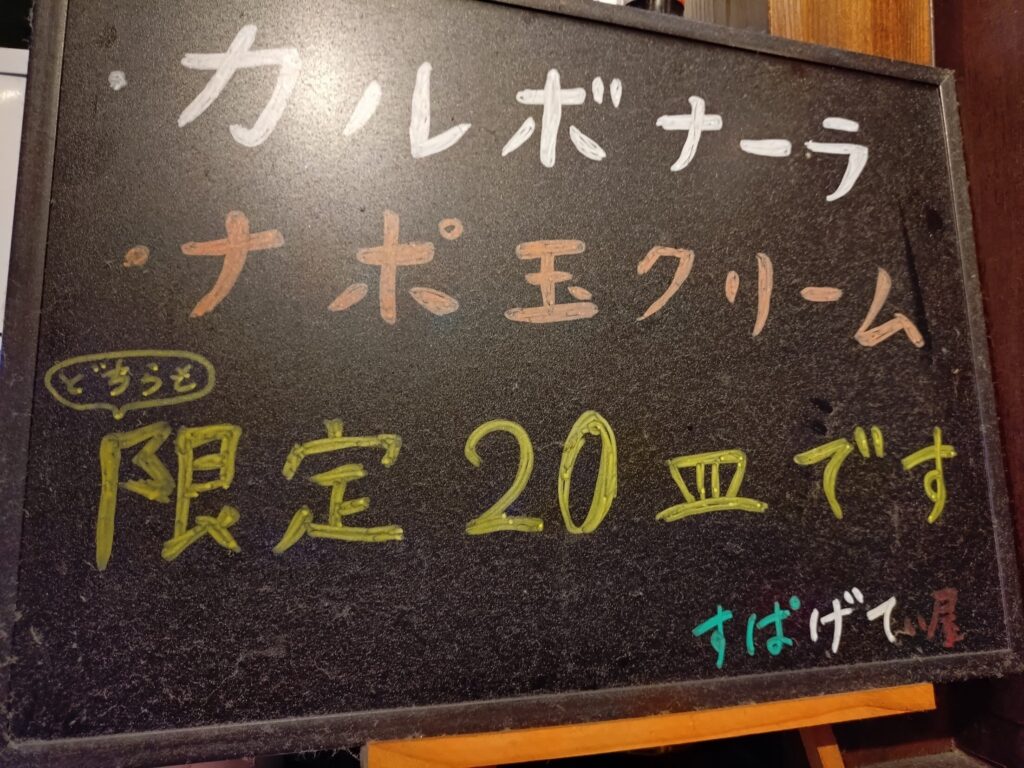 ・カルボナーラ
・ナポ玉クリーム
どちらも
限定20皿です
すぱげてぃ屋